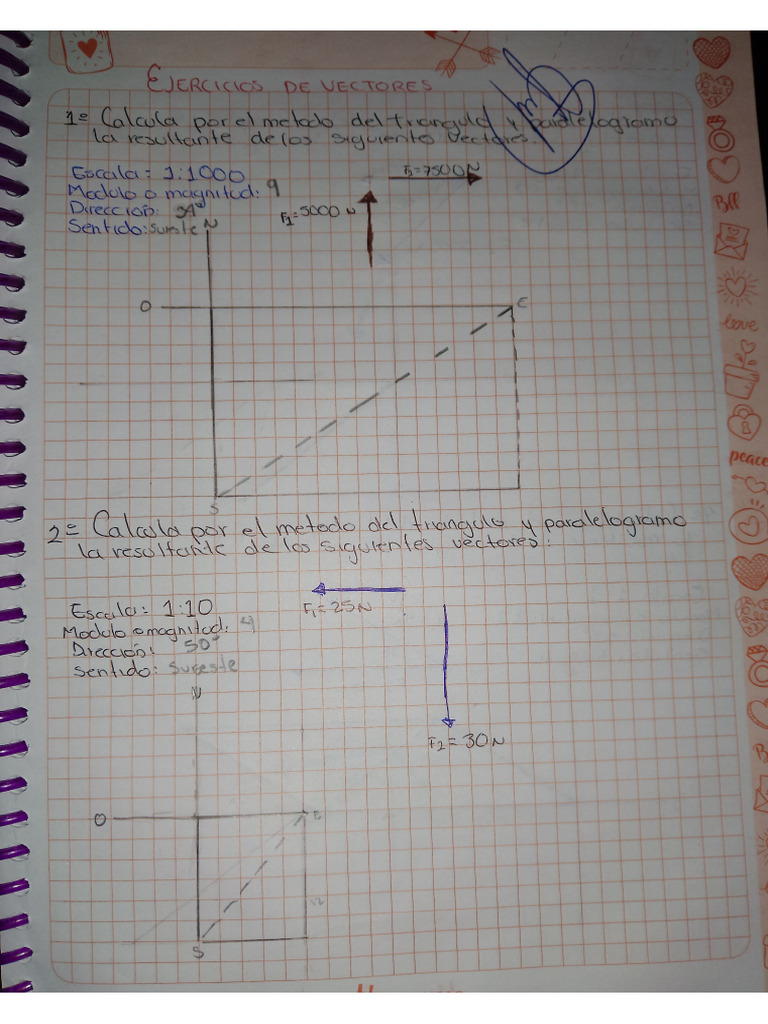 EJERCICIOS DE VECTORES
1º Calcula por el metodo del triangulo y paralelogramo
la resultante de los siguiento vectores.
Escala = 1:1000
F2=7500N
Modulo o magnitud: 9
Dirección:
F1=5000 N
Sentido:
N
O
E
S
2º Calcula por el metodo del triangulo y paralelogramo
la resultante de los siguientes vectores:
Escala: 1:10
F1=25N
Modulo o magnitud: 4
Dirección: 50°
Sentido: Sureste
N
F2=30N
O
E
S
Bff
love
peace